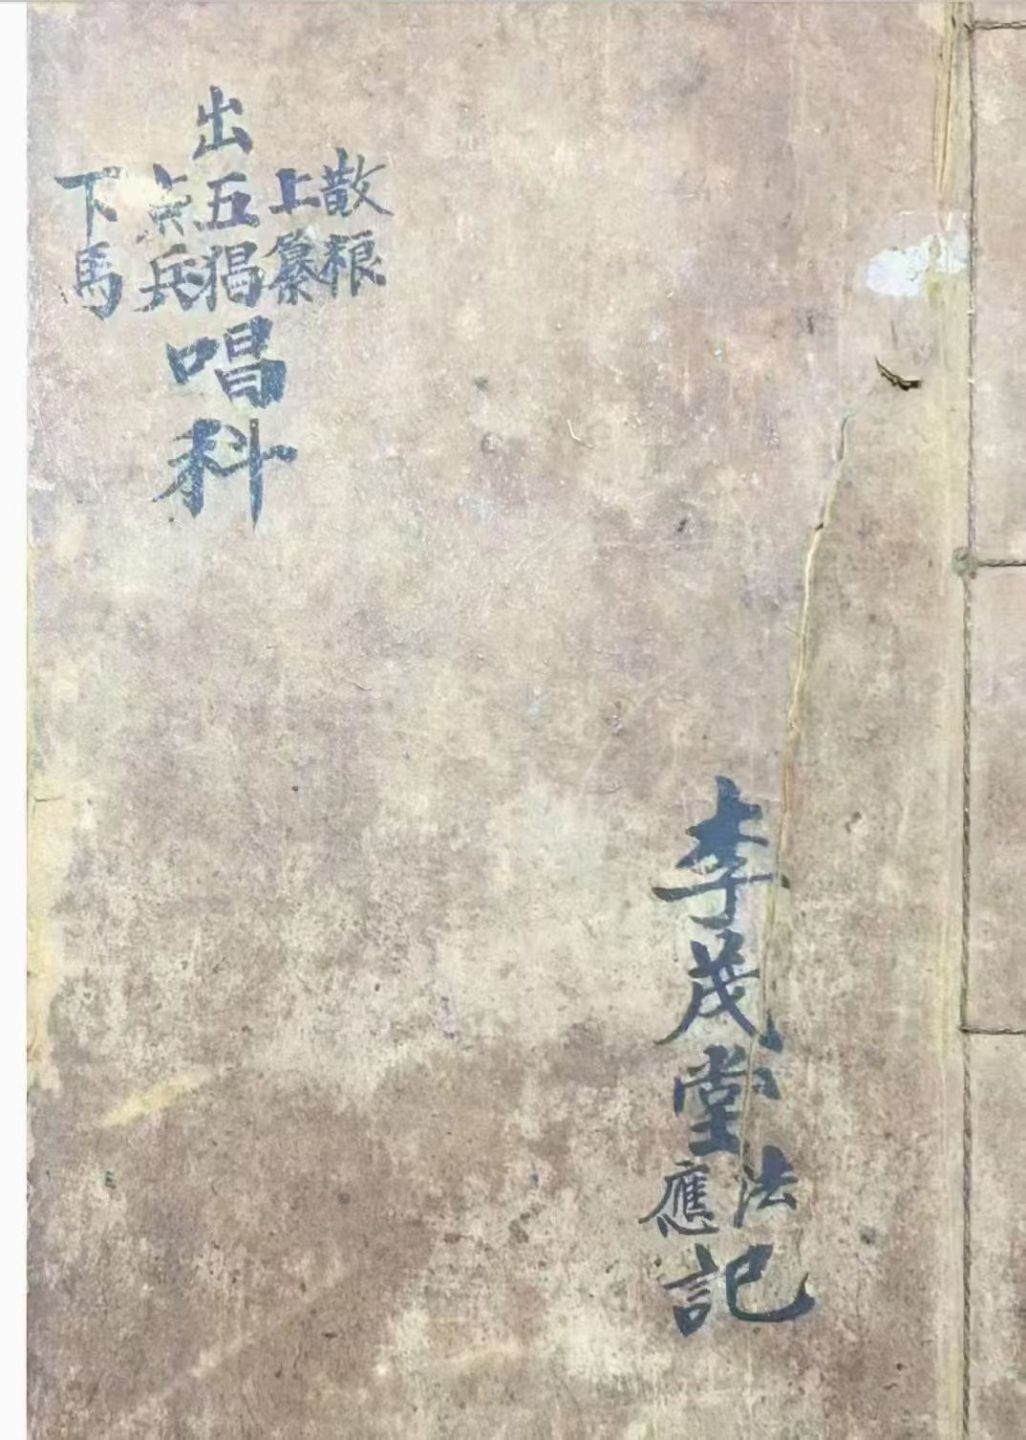 散粮
上纂
出五猖
点兵
下馬
唱科
李茂堂
法應
記